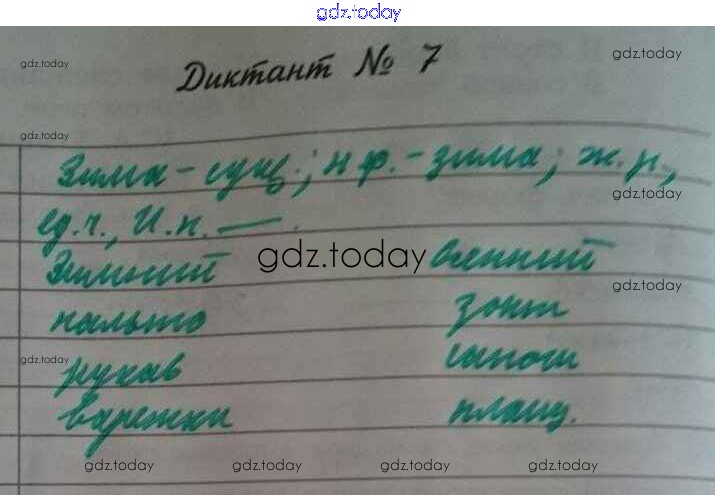 gdz.today
gdz.today
gdz.today
Диктант № 7
gdz.today
Зима – сущ.; н.ф. – зима; ж.р.,
gdz.today
ед.ч., И.п. —.
Зимний gdz.today Осенний
gdz.today
пальто зонт
gdz.today
рукав сапоги
варежки плащ.
gdz.today gdz.today gdz.today gdz.today